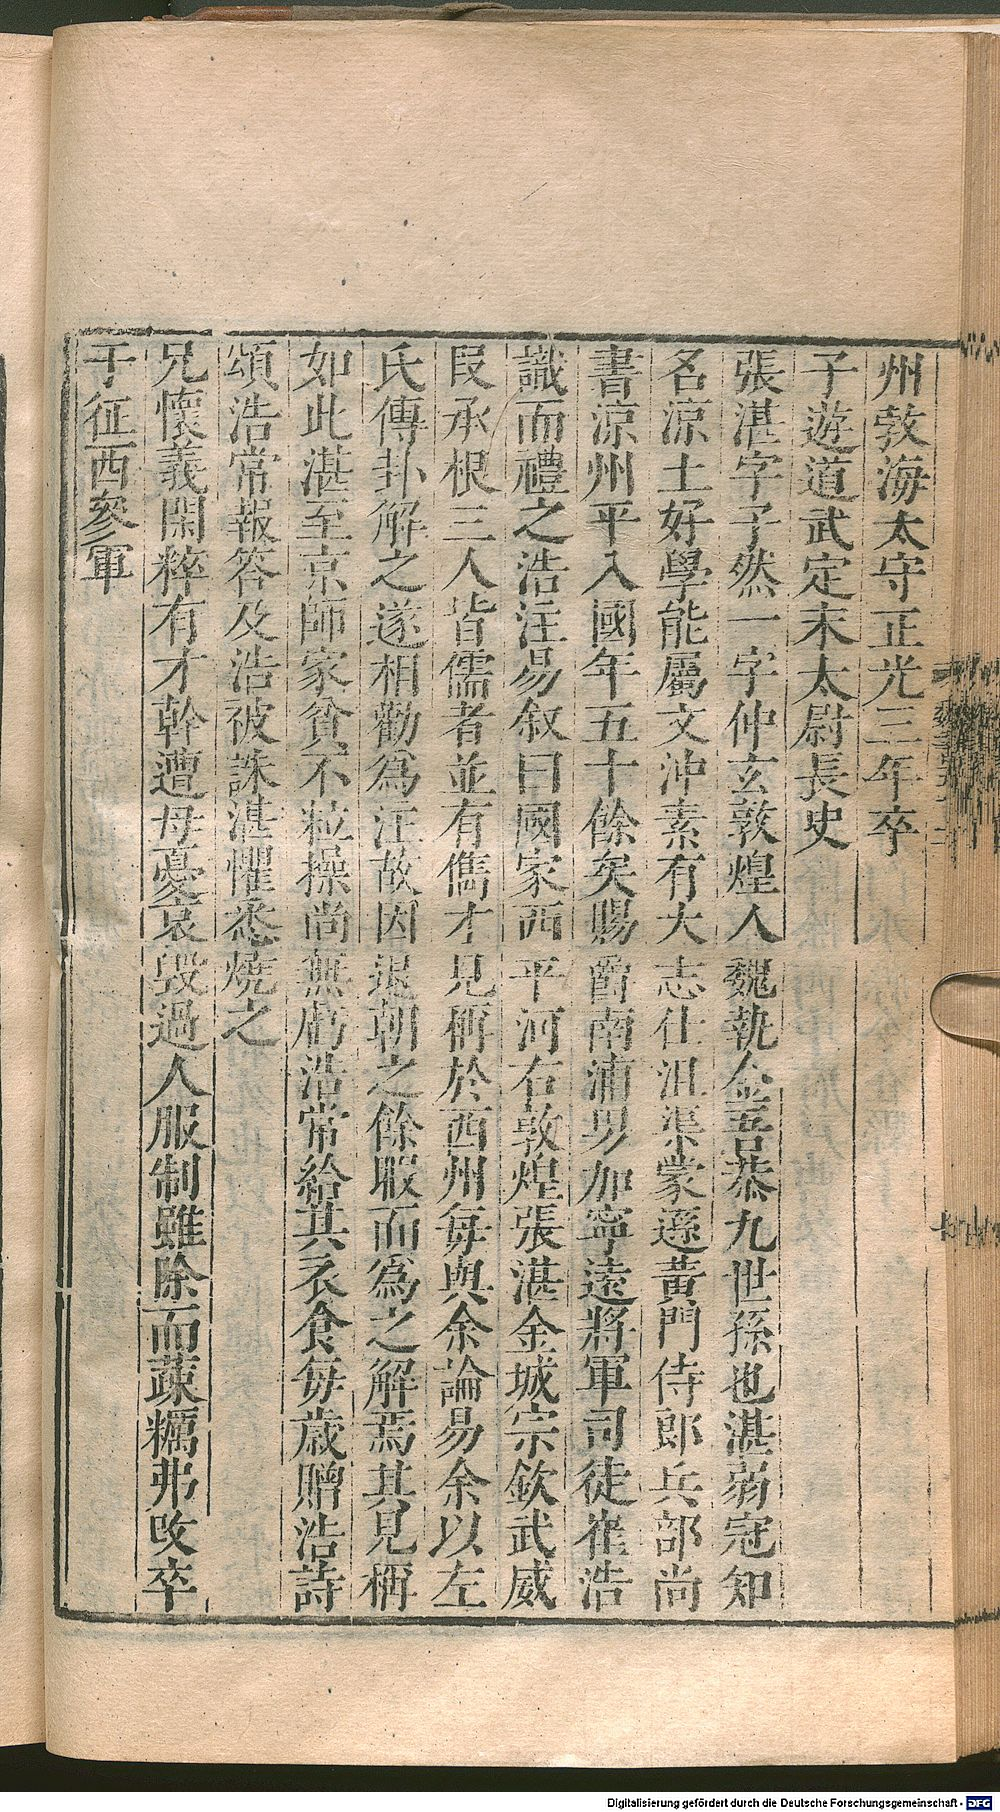 州敦海太守正光三年卒
子遊道武定末太尉長史
張湛字子然一字仲玄敦煌人魏執金吾恭九世孫也湛弱冠知
名涼土好學能屬文沖素有大志仕沮渠蒙遜黃門侍郎兵部尚
書涼州平入國年五十餘矣賜爵南浦男加寧遠將軍司徒崔浩
識而禮之浩注易叙曰國家西平河右敦煌張湛金城宗欽武威
段承根三人皆儒者並有儁才見稱於西州每與余論易余以左
氏傳卦解之遂相勸為注故因退朝之餘暇而為之解焉其見稱
如此湛至京師家貧不粒操尚無虧浩常給其衣食每歲贈浩詩
頌浩常報答及浩被誅湛懼悉燒之
兄懷義閑粹有才幹遭母憂哀毀過人服制雖除而蔬糲弗改卒
于征西參軍
Digitalisierung gefördert durch die Deutsche Forschungsgemeinschaft - DFG